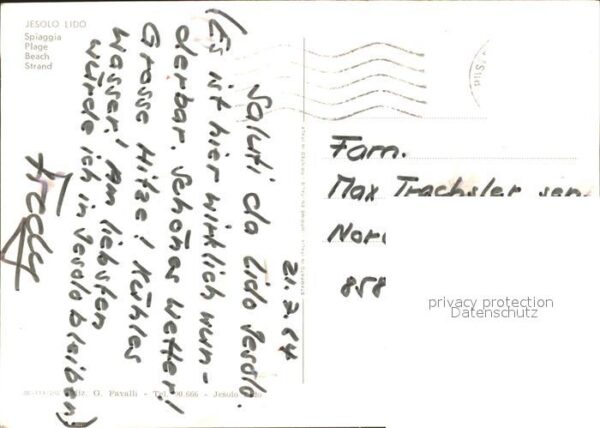 JESOLO LIDO
Spiaggia
Plage
Beach
Strand
21.7.64
Saluti da Lido Jesolo.
(Es ist hier wirklich wun-
derbar. Schönes Wetter!
Grosse Hitze! Kühles
Wasser! Am liebsten
würde ich in Jesolo bleiben)
Fredy
Fam.
Max Trachsler sen.
858
privacy protection
Datenschutz
G. Favalli - Tel. 90.666 - Jesolo Lido